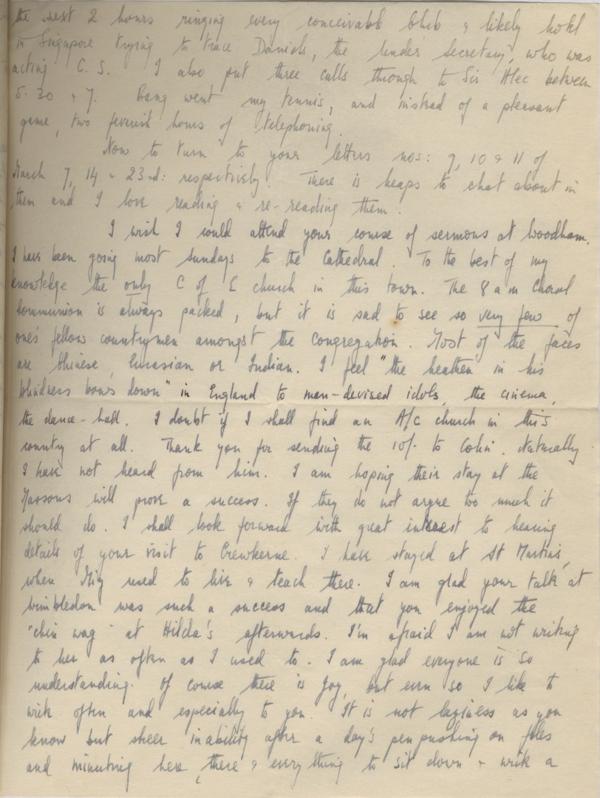 the next 2 hours ringing every conceivable Club & likely hotel
in Singapore trying to trace Daniels, the Under Secretary, who was
acting C.S. I also put three calls through to Sir Alec between
5.30 & 7. Bang went my tennis, and instead of a pleasant
game, two feverish hours of telephoning.
Now to turn to your letters nos: 9, 10 & 11 of
March 7, 14 & 23rd: respectively. There is heaps to chat about in
them and I love reading & re-reading them.
I wish I could attend your course of sermons at Woodham.
I have been going most Sundays to the Cathedral. To the best of my
knowledge the only C of E church in this town. The 8 am Choral
Communion is always packed, but it is sad to see so very few of
one's fellow countrymen amongst the congregation. Most of the faces
are Chinese, Eurasian or Indian. I feel "the heathen in his
blindness bows down" in England to man-devised idols, the cinema,
the dance-hall. I doubt if I shall find an A/C church in this
country at all. Thank you for sending the 10/- to Colin. Naturally
I have not heard from him. I am hoping their stay at the
will prove a success. If they do not argue too much it
should do. I shall look forward with great interest to hearing
details of your visit to Crewkerne. I have stayed at St Martins,
when used to live & teach there. I am glad your talk at
Wimbledon was such a success and that you enjoyed the
"chin wag" at Hilda's afterwards. I'm afraid I am not writing
to her as often as I used to. I am glad everyone is so
understanding. Of course there is Joy, but even so I like to
write often and especially to you. It is not laziness as you
know but sheer inability after a day's pen pushing on files
and minuting here, there & everything to sit down & write a